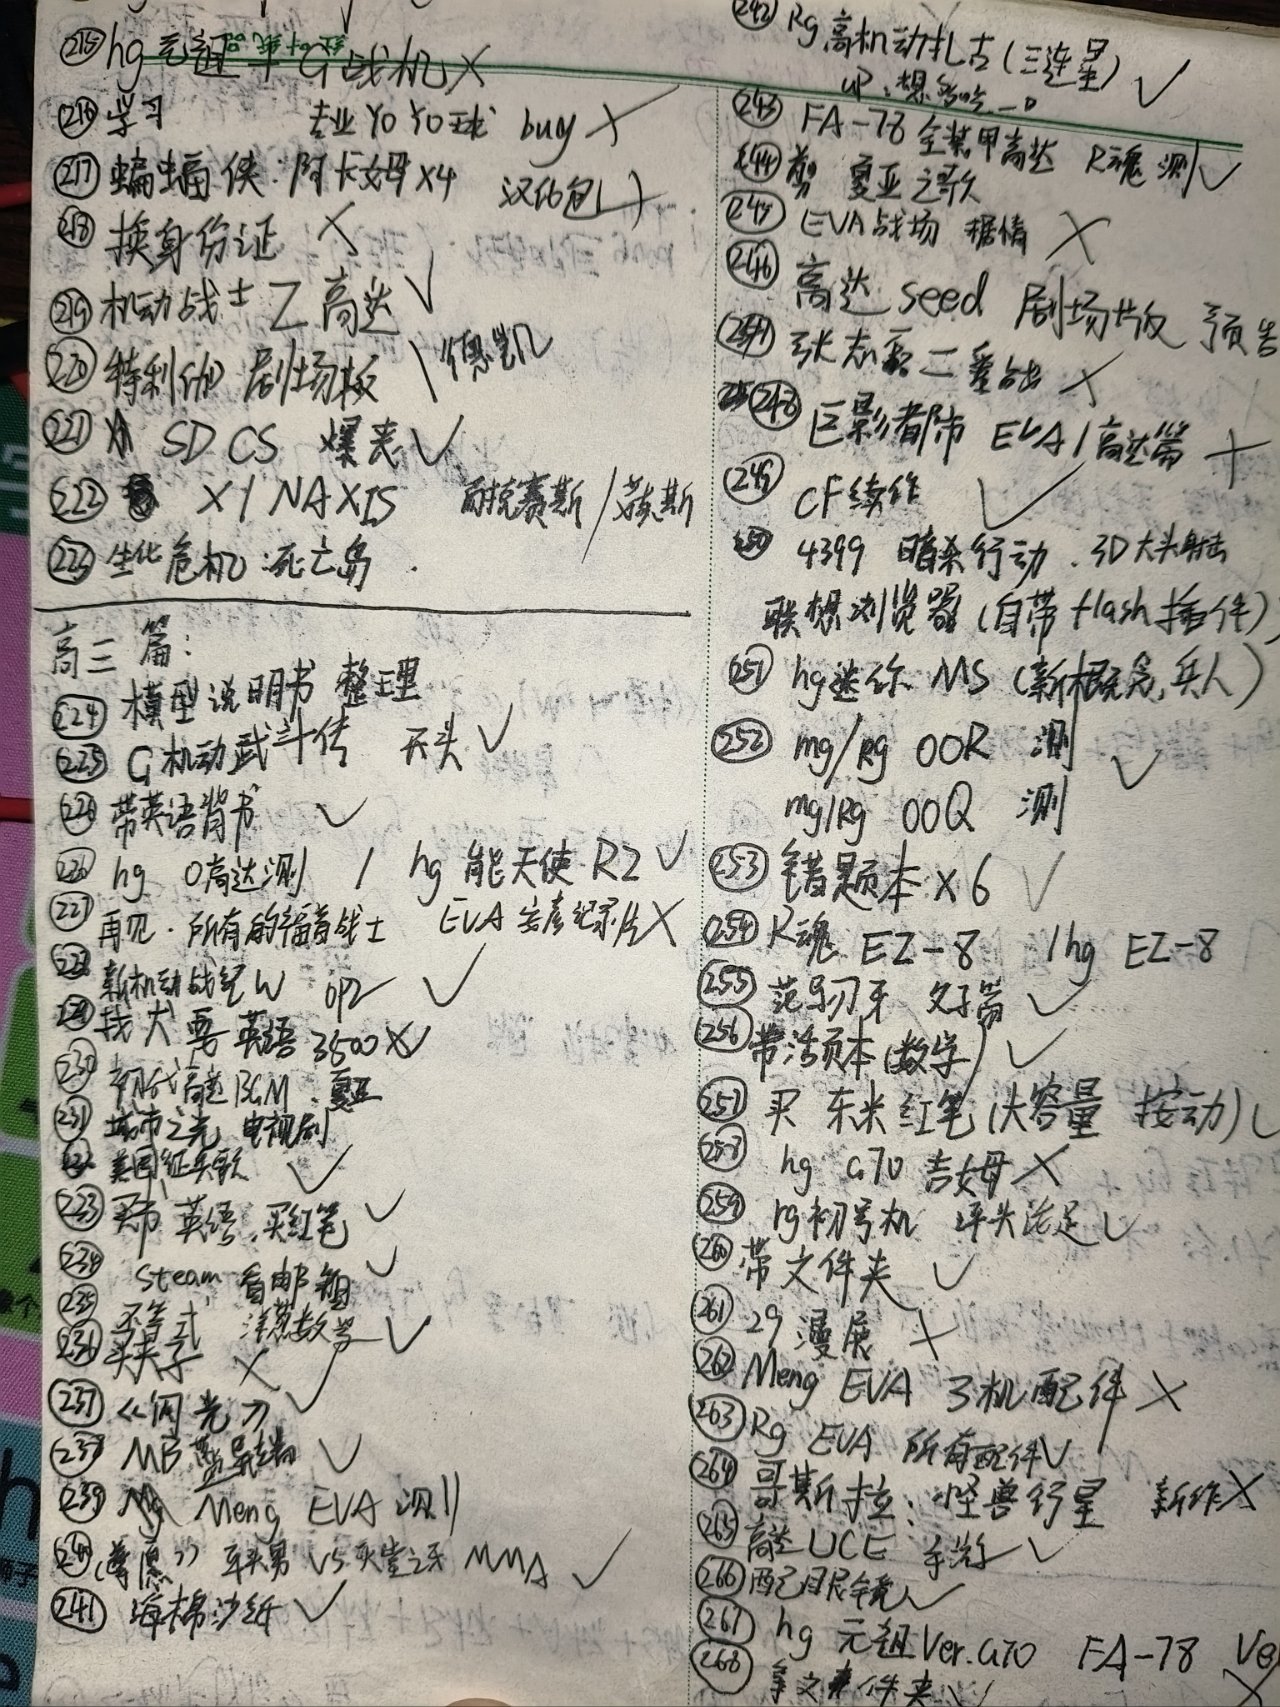 215 hg 元祖 + G战机 ×
216 学习 专业 YOYO球 buy ×
217 蝙蝠侠:阿卡姆 ×4 汉化包
218 换身份证 ×
219 机动战士Z高达 √
220 特利伽 剧场板
221 SD CS 爆袭 √
222 X1 NAXIS 耐克赛斯/
223 生化危机:死亡岛.
高三篇:
224 模型说明书 整理
225 G机动武斗传 √
226 带英语背书 √
226 hg O高达测 / hg 能天使 R2 √
227 再见.所有的福音战士 EVA 纪录片 ×
228 新机动战纪W OP2 √
229 找 要英语 3500 ×
230 初代高达BGM.夏亚
231 城市之光 电视剧
232 美国征兵歌 √
233 买 英语,买红笔 √
234 Steam 看邮箱 √
235 不等式 洋葱数学 √
236 买夹子 ×
237 《闪光》 √
238 MB 蓝异端 √
239 Mg Meng EVA 测
240 VS MMA √
241 海棉沙纸 √
242 Rg 高机动扎古(三连星) √
243 FA-78 全装甲高达 R魂 测 √
244 剪 夏亚之歌
245 EVA战场 ×
246 高达 seed 剧场版 预告
247 张志豪二 ×
248 巨影都市 EVA/高达篇
249 CF续作 √
250 4399 暗杀行动.3D大头射击
联想浏览器(自带flash插件)
251 hg迷你 MS (新概念,兵人)
252 mg/Rg OOR 测 √
mg/Rg OOQ 测
253 错题本×6 √
254 R魂 EZ-8 /hg EZ-8
255 范马刃牙 父子篇 √
256 带活页本(数学) √
257 买 东米红笔(大容量 按动)
258 hg G70 吉姆 ×
259 rg初号机 √
260 带文件夹 √
261 29 漫展 ×
262 Meng EVA 3机配件 ×
263 Rg EVA 所有配件 √
264 哥斯拉:怪兽行星 新作 ×
265 高达UCE 手游 √
266 配眼镜 √
267 hg 元祖Ver.G70 FA-78 Ve
268 文件夹 √